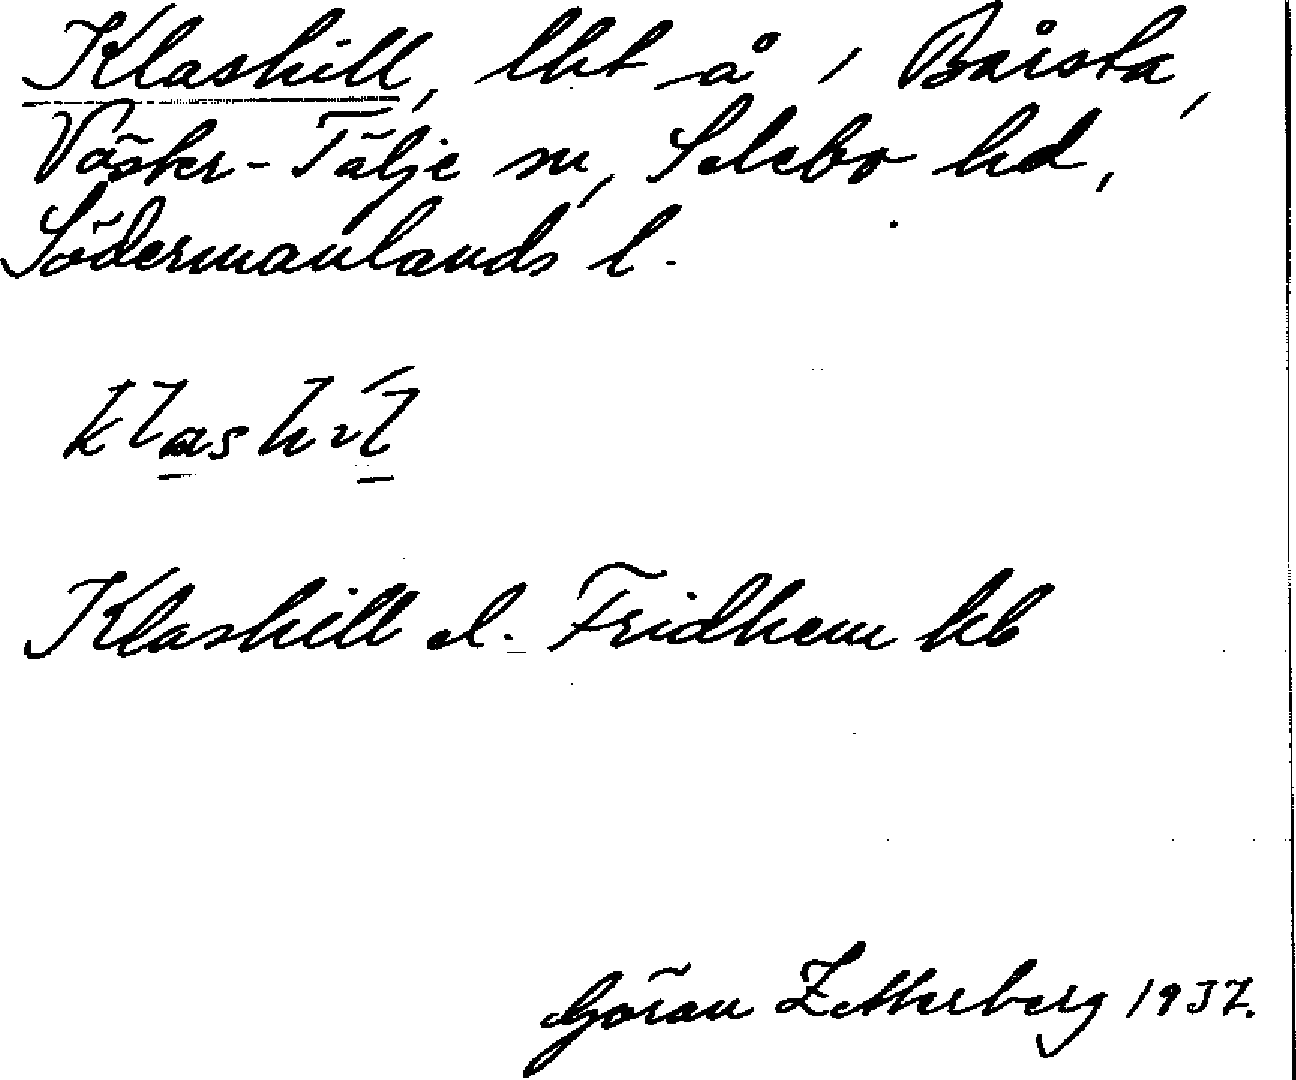 Klashill, lht å 1 Bårsta,
Väster-Tälje sn, Selebo hd,
Södermanlands l.
klashíl
Klashill el. Fridhem kb
Göran Zetterberg 1937.